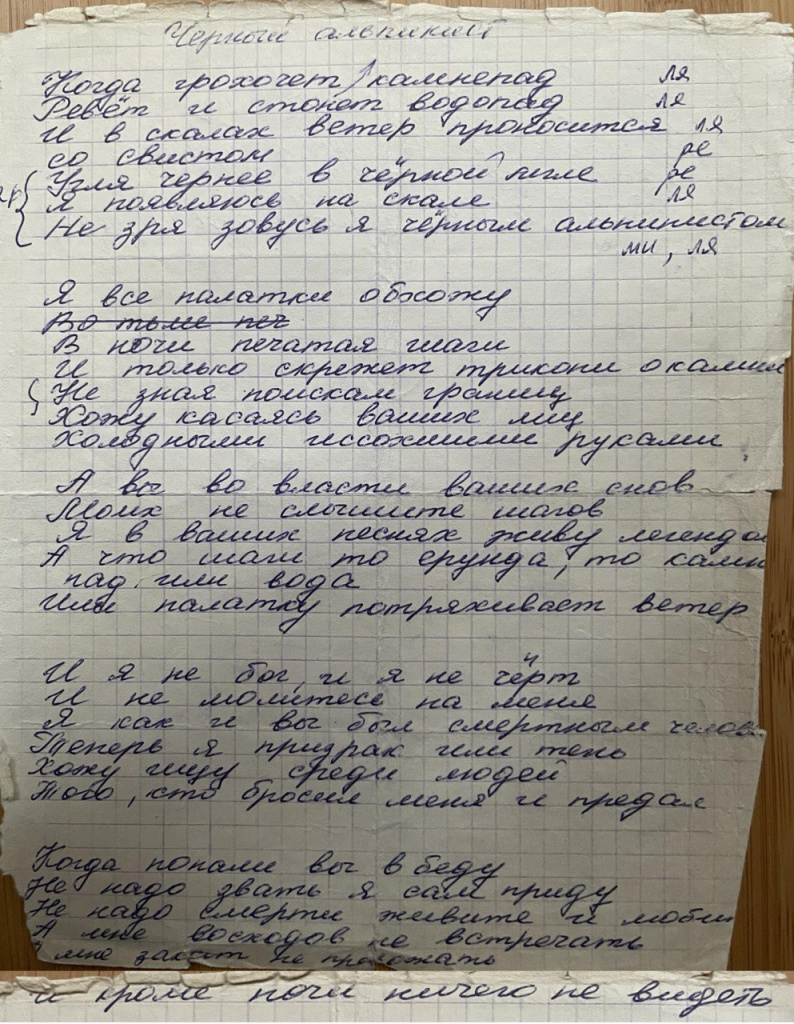 Чёрный альпинист
Когда грохочет камнепад ля
Ревёт и стонет водопад ля
И в скалах ветер проносится ля
со свистом ре
Угля чернее в чёрной мгле ре
Я появляюсь на скале ля
Не зря зовусь я чёрным альпинистом
ми, ля
Я все палатки обхожу
Во тьме печ
В ночи печатая шаги
И только скрежет трикони о камни
Не зная поискам границ
Хожу касаясь ваших лиц
Холодными иссохшими руками
А вы во власти ваших снов
Моих не слышите шагов
Я в ваших песнях живу легендо
А что шаги то ерунда, то камн
пад или вода
Или палатку потряхивает ветер
И я не бог, и я не чёрт
И не молитесь на меня
Я как и вы был смертным челов
Теперь я призрак или тень
Хожу ищу среди людей
Того, кто бросил меня и предал
Когда попали вы в беду
Не надо звать я сам приду
Не надо смерти живите и люби
А мне восходов не встречать
И мне закат не провожать
и кроме ночи ничего не видеть